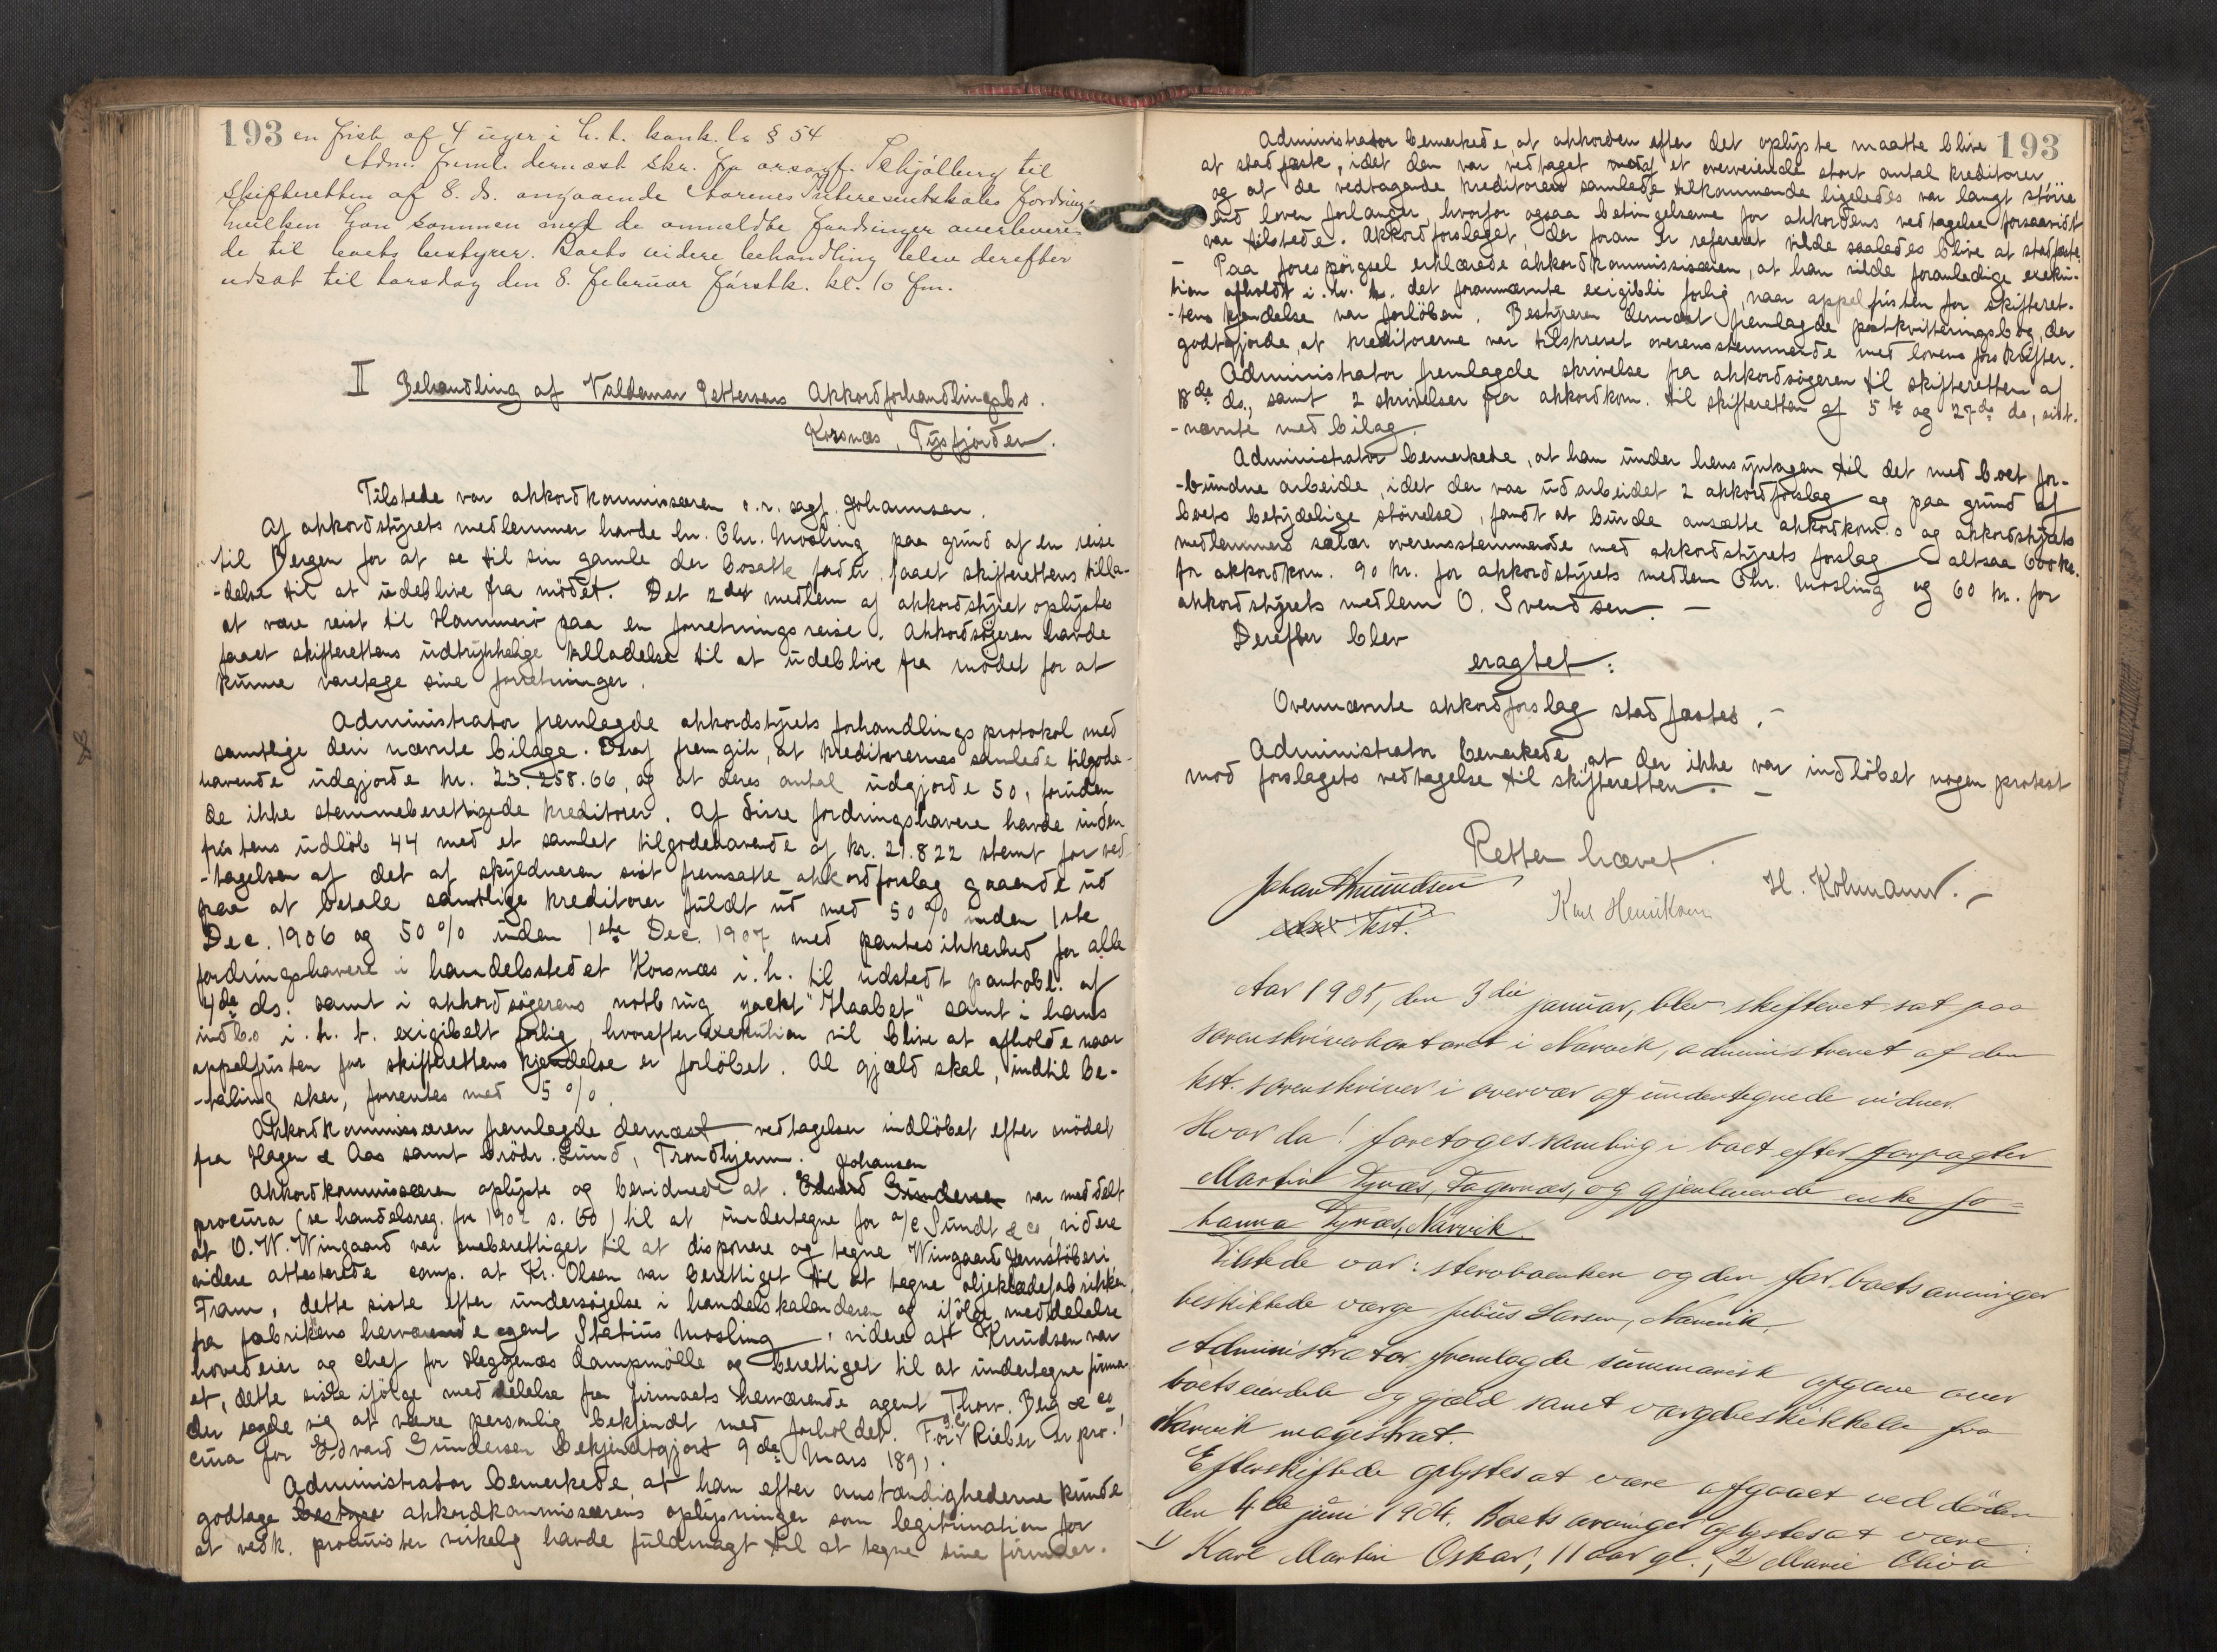 193 en frist af 4 uger i h. t. konk. l. § 54
Adm. freml. dernæst skr. fra orsagf. Schjølberg til
skifteretten af 8. ds. angaaende fordring,
hvilken han sammen med de anmeldte fordringer overlevere-
de til boets bestyrer. Boets videre behandling blev derefter
udsat til torsdag den 8. februar førstk. kl. 10 fm.
II Behandling af Valdemar Pettersens Akkordforhandlingsbo.
Korsnæs, Tysfjorden.
Tilstede var akkordkommissæren o.r. sagf. Johannsen.
Af akkordstyrets medlemmer havde hr. Chr. Mosling paa grund af en reise
til Bergen for at se til sin gamle der bosatte fader faaet skifterettens tilla-
-delse til at udeblive fra mödet. Det 2det medlem af akkordstyret oplystes
at være reist til Hammerö paa en forretningsreise. Akkordsögeren havde
faaet skifterettens udtrykkelige tilladelse til at udeblive fra mödet for at
kunne varetage sine forretninger.
Administrator fremlagde akkordstyrets forhandlingsprotokol med
samtlige deri nævnte bilage. Deraf fremgik, at kreditorernes samlede tilgode-
havende udgjorde kr. 23.258.66, og at deres antal udgjorde 50, foruden
de ikke stemmeberettigede kreditorer. Af disse fordringshavere havde inden
fristens udlöb 44 med et samlet tilgodehavende af kr. 21.822 stemt for ved-
-tagelsen af det af skyldneren sist fremsatte akkordforslag gaaende ud
paa at betale samtlige kreditorer fuldt ud med 50 % inden 1ste
Dec. 1906 og 50 % inden 1ste Dec. 1907 med pantesikkerhed for alle
fordringshavere i handelsstedet Korsnæs i. h. til udstedt pantobl. af
4de ds. samt i akkordsögerens notbrug yackt "Haabet" samt i hans
indbo i. h. t. exigibelt forlig, hvorefter exekution vil blive at afholde naar
appelfristen for skifterettens kjendelse er forlöbet. Al gjæld skal, indtil be-
-taling sker, forrentes med 5 %.
Akkordkommissæren fremlagde dernæst vedtagelser indlöbet efter mödet
fra Hagen & Aas samt Brödr. Lund, Trondhjem. Johansen
Akkordkommissæren oplyste og bevidnede at . Edvard Gundersen var meddelt
procura (se handelsreg. for 1902 s. 60) til at undertegne for a/s Sundt & co, videre
at O. W. Wingaard var eneberettiget til at disponere og tegne Wingaard Jernstöberi
videre attesterede comp. at Kr. Olsen var berettiget til at tegne oljeklædefabrikken
Fram, dette siste efter undersögelse i handelskalenderen og ifölge meddelelse
fra fabrikens herværende agent Statius Mosling, videre at Knudsen var
hovedeier og chef for Heggenæs dampmölle og berettiget til at undertegne firma-
et, dette siste ifölge meddelelse fra firmaets herværende agent Thorv. Berg & co
der sagde sig at være personlig bekjendt med forholdet. For G.C. Rieber er pro-
cura for Edvard Gundersen bekjendtgjort 9de Mars 1891.
Administrator bemerkede, at han efter omstændighederne kunde
godtage bestyre akkordkommissærens oplysninger som legitimation for
at vedk. procurister virkelig havde fuldmagt til at tegne sine firmaer.
Administrator bemerkede, at akkorden efter det oplyste maatte blive 193
at stadfæste, idet den var vedtaget af et overveiende stort antal kreditorer,
og at de vedtagende kreditorers samlede tilkommende ligeledes var langt större
end loven forlanger, hvorfor ogsaa betingelserne for akkordens vedtagelse forsaavidt
var tilstede. Akkordforslaget, der foran er refereret vilde saaledes blive at stadfæste.
- Paa forespörgsel erklærede akkordkommissæren, at han vilde foranledige exeku-
tion afholdt i. h. t. det forannævnte exigibli forlig, naar appelfristen for skifteret-
-tens kjendelse var forlöben. Bestyreren dernæst fremlagde postkvitteringsbog, der
godtgjorde, at kreditorerne var tilskrevet overensstemmende med lovens forskrifter.
Administrator fremlagde skrivelse fra akkordsögeren til skifteretten af
18de ds., samt 2 skrivelser fra akkordkom. til skifteretten af 5te og 27de ds, sist-
-nævnte med bilag.
Administrator bemerkede, at han under hensyntagen til det med boet for-
-bundne arbeide, idet der var udarbeidet 2 akkordforslag og paa grund af
boets betydelige störrelse, fandt at burde ansætte akkordkom.s og akkordstyrets
medlemmers salær overensstemmende med akkordstyrets forslag - altsaa 600 kr.
for akkordkom. 90 kr. for akkordstyrets medlem Chr. Mosling og 60 kr. for
akkordstyrets medlem O. Svendsen. -
Derefter blev
eragtet:
Ovennævnte akkordforslag stadfæstes. -
Administrator bemerkede, at der ikke var indlöbet nogen protest
mod forslagets vedtagelse til skifteretten. -
Retten hævet.
Johan Amundsen
Karl Henriksen
H. Kohmann. -
test.
Aar 1905, den 3die januar, blev skifteret sat paa
sorenskriverkontoret i Narvik, administreret af den
kst. sorenskriver i overvær af undertegnede vidner.
Hvor da! foretoges samling i boet efter forpagter
Martin Tynæs, Fagernæs, og gjenlevende enke Jo-
hanna Tynæs, Narvik.
Tilstede var: stervboenken og den for boets arvinger
beskikkede værge Julius Larsen, Narvik.
Administrator fremlagde summarisk opgave over
boets eiendele og gjæld samt værgebeskikkelse fra
Narvik magistrat.
Efterskiftede oplystes at være afgaaet ved döden
den 4de juni 1904. Boets arvinger oplystes at være:
1) Karl Martin Oskar, 11 aar gl., 2) Marie Oliva